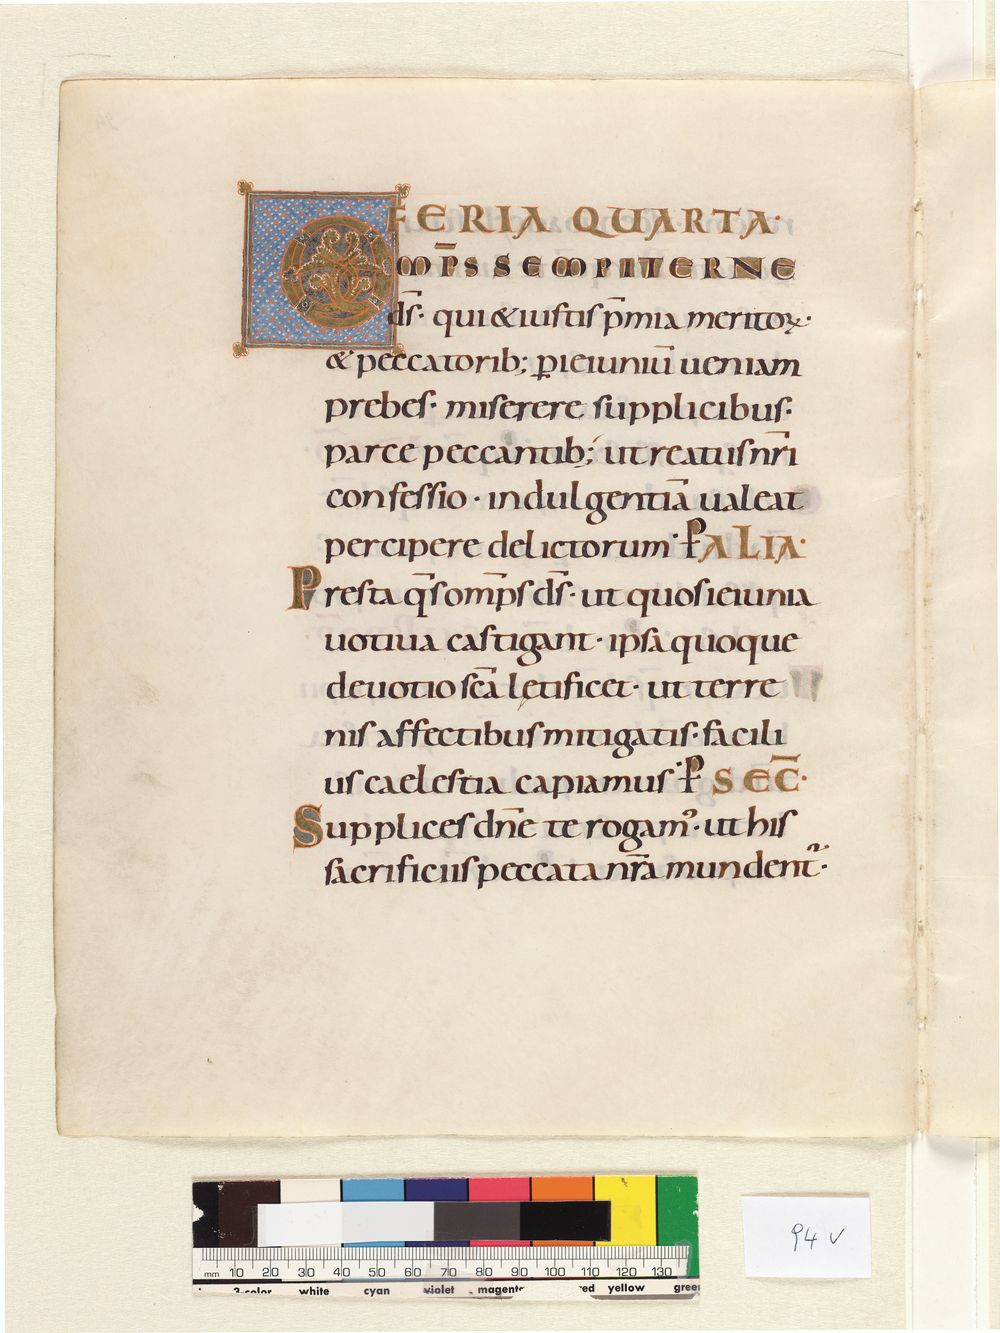 FERIA QUARTA·
OMP̅S SEMPITERNE
ds̅· qui & iustis p̅mia meritoꝝ·
& peccatorib; ꝑ ieiuniu̅ ueniam
prebes· miserere supplicibus·
parce peccantib; ut reatus nr̅i
confessio· indulgentia̅ ualeat
percipere delictorum· ꝑ ALIA·
Presta qs̅ omp̅s ds̅· ut quos ieiunia
uotiua castigant· ipsa quoque
deuotio sc̅a lętificet· ut terre
nis affectibus mitigatis· facili
us caelestia capiamus· ꝑ SEC̅·
Supplices dn̅e te rogamꝰ· ut his
sacrificiis peccata nr̅a mundent᷑·
94 v
mm 10 20 30 40 50 60 70 80 90 100 110 120 130
3-color white cyan violet magenta red yellow green